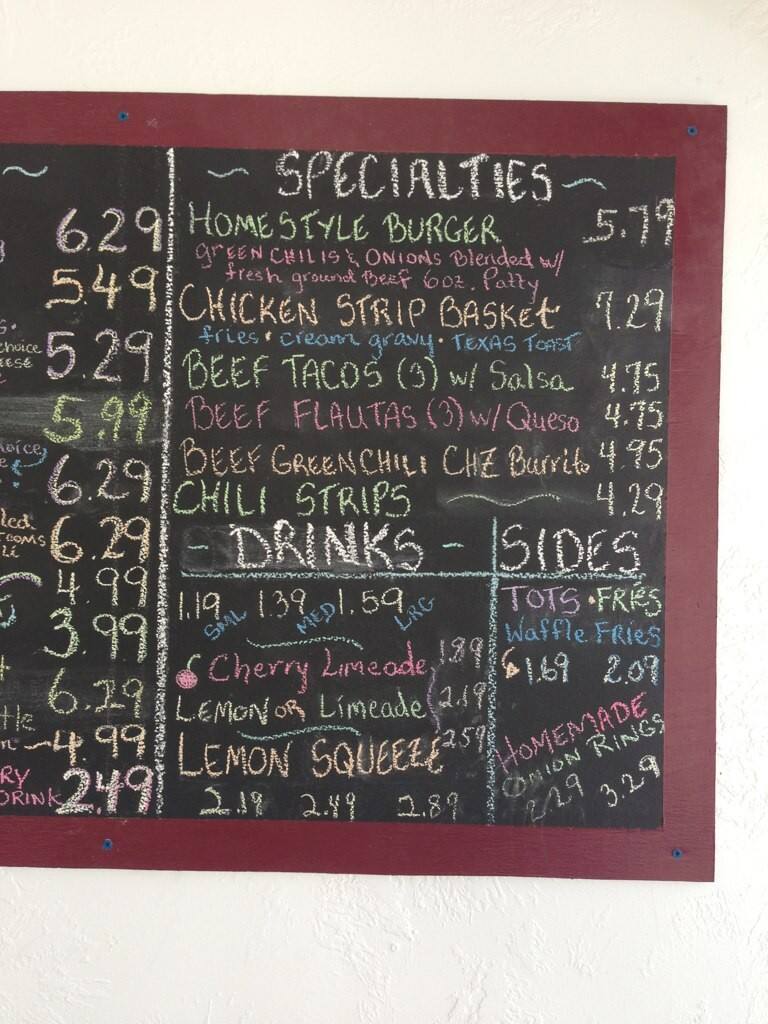 6.29
5.49
choice
5.29
5.99
6.29
6.29
4.99
3.99
6.29
4.99
DRINK 2.49
SPECIALTIES
HOMESTYLE BURGER 5.79
GREEN CHILIS & ONIONS Blended w/
fresh ground Beef 6oz. Patty
CHICKEN STRIP BASKET 7.29
fries • cream gravy • TEXAS TOAST
BEEF TACOS (3) w/ Salsa 4.75
BEEF FLAUTAS (3) w/ Queso 4.75
BEEF GREEN CHILI CHZ Burrito 4.95
CHILI STRIPS 4.29
- DRINKS -
1.19 1.39 1.59
SML MED LRG
Cherry Limeade 1.89
LEMON OR Limeade 2.19
LEMON SQUEEZE 2.59
2.19 2.49 2.89
SIDES
TOTS • FRIES
Waffle Fries
1.69 2.09
HOMEMADE
ONION RINGS
2.29 3.29